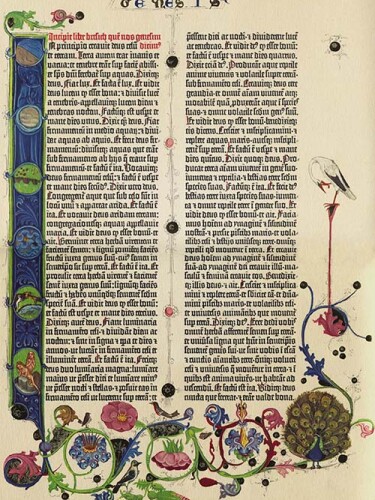 GENESIS
Incipit liber bresith quē nos genesim
In principio creavit deus celū dicim⁹
et terram. Terra autem erat inanis et
vacua: et tenebre erāt sup faciē abissi:
et spūs dñi ferebat̄ sup aquas. Dixitq̄
deus. Fiat lux. Et facta ē lux. Et vidit
deus lucem q̄ esset bona: et divisit lucē
a tenebris·appellavitq̄ lucem diem et
tenebras noctem. Factūq̄ est vespe et
mane dies unus. Dixit q̄ deus. Fiat
firmamentū in medio aquaꝝ: et divi-
dat aquas ab aquis. Et fecit deus fir-
mamentū: divisitq̄ aquas que erāt
sub firmamento ab hijs q̄ erant sup
firmamentū: et factū ē ita. Vocavitq̄
deus firmamentū celū: et factū ē vespe
et mane dies secūd⁹. Dixit vero deus.
Congregent̄ aque que sub celo sūt in
locū unū et appareat arida. Et factū ē
ita. Et vocavit deus aridam terram:
congregacionesq̄ aquaꝝ appellavit
maria. Et vidit deus q̄ esset bonū·et
ait. Germinet terra herbā virentem et
facientē semen: et lignū pomiferū faciēs
fructū iuxta genus suū·cui⁹ semen in
semetipso sit sup terrā. Et factū ē ita. Et
protulit terra herbā virentem et facientē
semē iuxta genus suū: lignūq̄ faciēs
fructū et habēs unūqdq̄ sementē scdm
speciē suā. Et vidit deus q̄ esset bonū:
et factū est vespe et mane dies tercius.
Dixitq̄ autē deus. Fiant luminaria
in firmamēto celi·et dividāt diem ac
noctem: et sint in signa et tpa et dies et
annos·ut luceāt in firmamēto celi et
illuminent terrā. Et factū ē ita. Fecitq̄
deus duo lumīaria magna: lumīare
maius ut pesset diei et lumīare min⁹
ut pesset nocti: et stellas·et posuit eas in
firmamēto celi ut lucerent sup terrā: et
pessent diei ac nocti·et dividerent lucē
ac tenebras. Et vidit deus q̄ esset bonū:
et factū ē vespe et mane dies quartus.
Dixit eciā de⁹. Producant aque reptile
anime viventis et volatile sup terrā·
sub firmamēto celi. Creavitq̄ deus cete
grandia·et omnē aīam viventē atq̄
motabilē quā produxerāt aque ī species
suas·et omne volatile scdm gen⁹ suū.
Et vidit deus q̄ esset bonū·benedixitq̄
eis dicens. Crescite et multiplicamini·et
replete aquas maris·avesq̄ mltipli-
cent̄ sup terrā. Et factū ē vespe et mane
dies quītus. Dixit quoq̄ deus. Pro-
ducat terra aīam viventē in gene suo·
iumenta et reptilia·et bestias terre scdm
species suas. Factū ē ita. Et fecit de⁹
bestias terre iuxta species suas·iumen-
ta et omne reptile terre ī genere suo. Et
vidit deus q̄ esset bonū·et ait. Facia-
mus hoīem ad ymaginē et similitudinē
nostrā·et presit piscib⁹ maris·et vola-
tilib⁹ celi et bestijs universeq̄ terre·omīq̄
reptili qd̄ movet̄ ī terra. Et creavit
deus hoīem ad ymaginē et similitudinē
suā·ad ymaginē dei creavit illū·ma-
sculū et feminā creavit eos. Benedixit-
q̄ illis deus·et ait. Crescite et mltiplica-
mini et replete terrā·et subicite eā·et dña-
mini piscib⁹ maris·et volatilib⁹ celi·
et universis animātib⁹ que movent̄
sup terrā. Dixitq̄ de⁹. Ecce dedi vobis
omnē herbā afferentē semen sup terrā·
et universa ligna que habēt in semetipīs
sementē genis sui·ut sint vobis ī escā
et cūctis aīantib⁹ terre·omīq̄ volucri
celi et universis q̄ movent̄ in terra·et ī
quib⁹ est anima vivēs·ut habeāt ad
vescendū. Et factū est ita. Viditq̄ deus
cuncta que fecerat·et erāt valde bona.